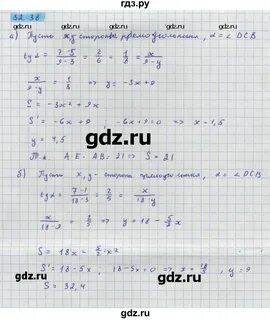 гдз.ру
32.38
а) Пусть x, y стороны прямоугольника, α = ∠ DCB
tg α = 7-5/9-3 = 2/6 = 1/3 = x/9-y
x/9-y = 1/3 => y = -3x + 9
S = -3x² + 9x
S' = -6x + 9, -6x + 9 = 0 => x = 1,5
y = 4,5
Т.к. A·E· AB = 21 => S = 21
б) Пусть x, y - стороны прямоугольника, α = ∠ DCB
tg α = 7-1/18-3 = 2/5 = x/18-y
x/18-y = 2/5 => y = 18 - 5/2 x
S = 18x - 5/2 · x²
S' = 18 - 5x, 18 - 5x = 0 => x = 18/5, y = 9
S = 32,4